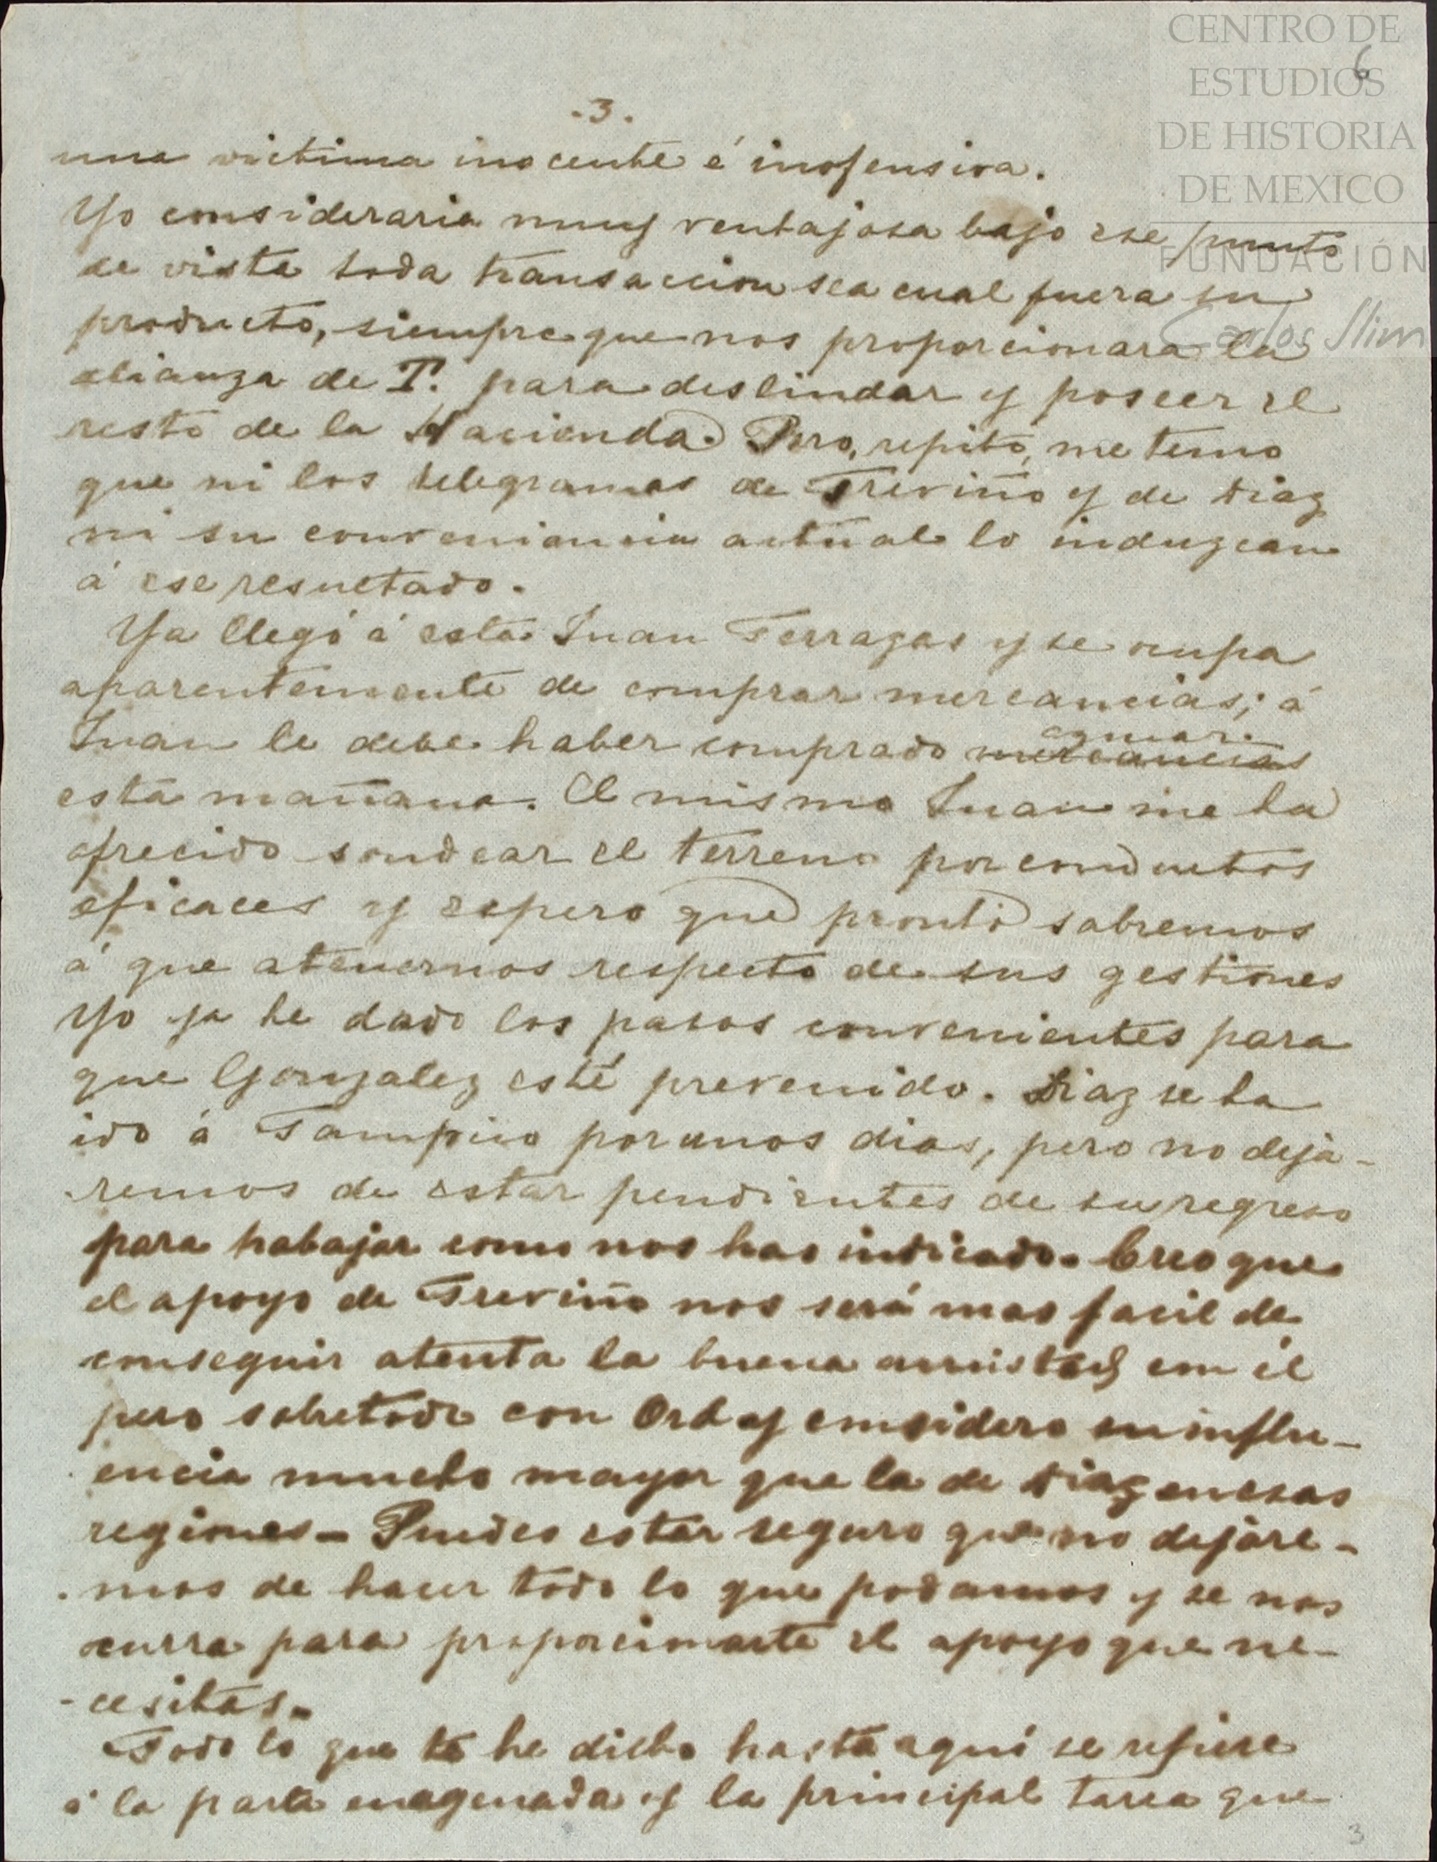 CENTRO DE
ESTUDIOS
DE HISTORIA
DE MEXICO
FUNDACIÓN
Carlos Slim
6
.3.
una victima inocente é inofensiva.
Yo consideraria muy ventajosa bajo ese punto
de vista toda transaccion sea cual fuera su
producto, siempre que nos proporcionara la
alianza de T. para deslindar y poseer el
resto de la Hacienda. Pero, repito, me temo
que ni los telegramas de Treviño y de Diaz
ni su conveniencia actual lo induzcan
á ese resultado.
Ya llegó á esta Juan Terrazas y se ocupa
aparentemente de comprar mercancias; á
Juan le debe haber comprado mercancias azucar
esta mañana. El mismo Juan me ha
ofrecido sondear el terreno por conductos
eficaces y espero que pronto sabremos
á que atenernos respecto de sus gestiones
Yo ya he dado los pasos convenientes para
que Gonzalez esté prevenido. Diaz se ha
ido á Tampico por unos dias, pero no deja-
remos de estar pendientes de su regreso
para trabajar como nos has indicado. Creo que
el apoyo de Treviño nos será mas facil de
conseguir atenta la buena amistad con él
pero sobretodo con Ord y considero su influ-
encia mucho mayor que la de Diaz en esas
regiones- Puedes estar seguro que no dejare-
mos de hacer todo lo que podamos y se nos
ocurra para proporcionarte el apoyo que ne-
-cesitas.
Todo lo que te he dicho hasta aqui se refiere
á la parte enagenada y la principal tarea que
3